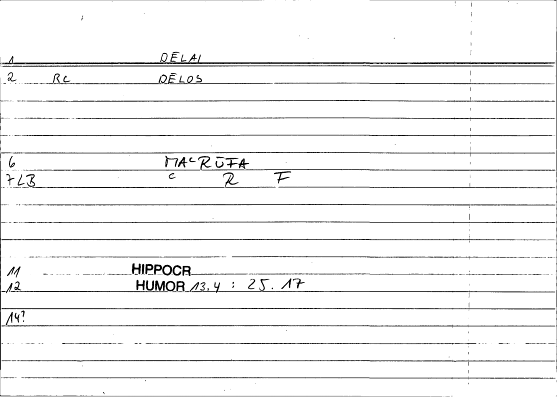 1 DĒLAI
2 RC DĒLOS
6 MACRŪFA
7 LB C R F
11 HIPPOCR
12 HUMOR 13.4 : 25.17
14?